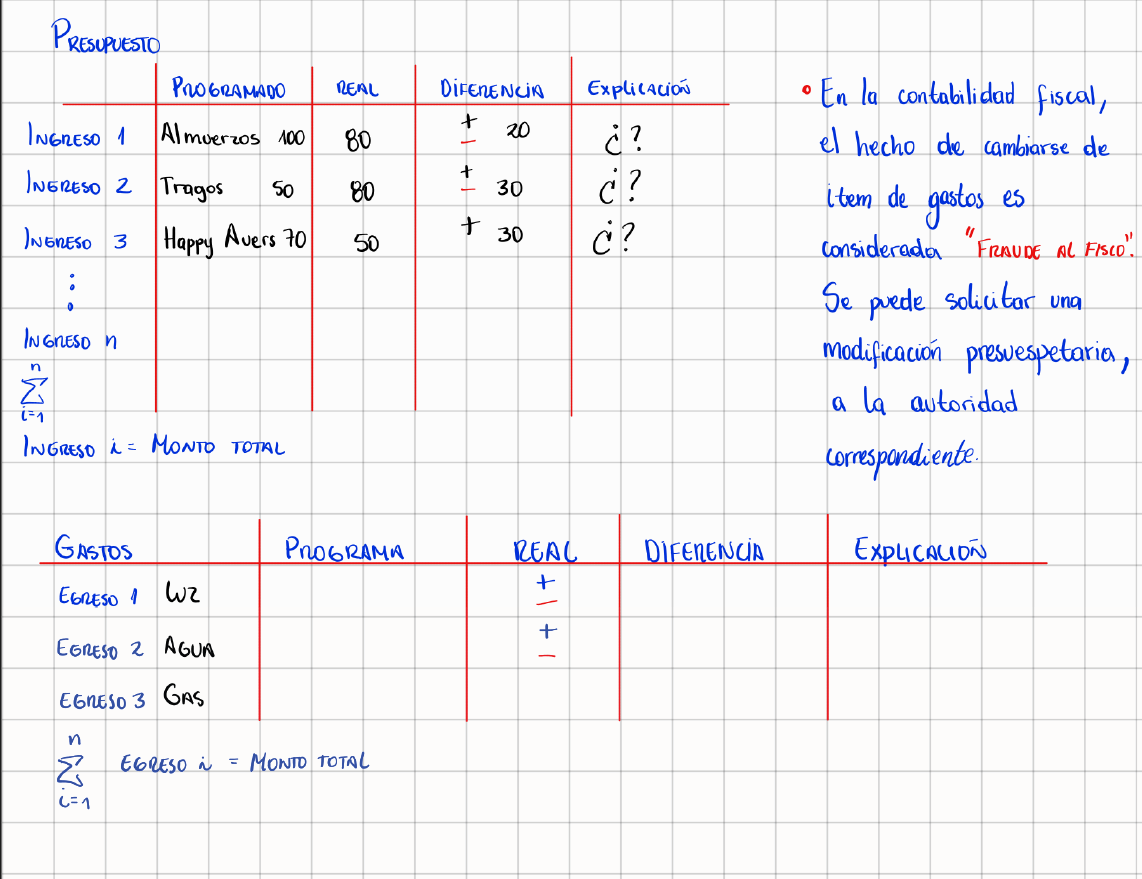 PRESUPUESTO
PROGRAMADO REAL DIFERENCIA Explicación
INGRESO 1 Almuerzos 100 80 ± 20 ¿?
INGRESO 2 Tragos 50 80 ± 30 ¿?
INGRESO 3 Happy Auers 70 50 + 30 ¿?
⋮
INGRESO n
n
∑
i=1
INGRESO i = MONTO TOTAL
• En la contabilidad fiscal,
el hecho de cambiarse de
item de gastos es
considerada "FRAUDE AL FISCO".
Se puede solicitar una
modificación presuespetaria,
a la autoridad
correspondiente.
GASTOS PROGRAMA REAL DIFERENCIA EXPLICACIÓN
EGRESO 1 LUZ ±
EGRESO 2 AGUA ±
EGRESO 3 GAS
n
∑ EGRESO i = MONTO TOTAL
i=1